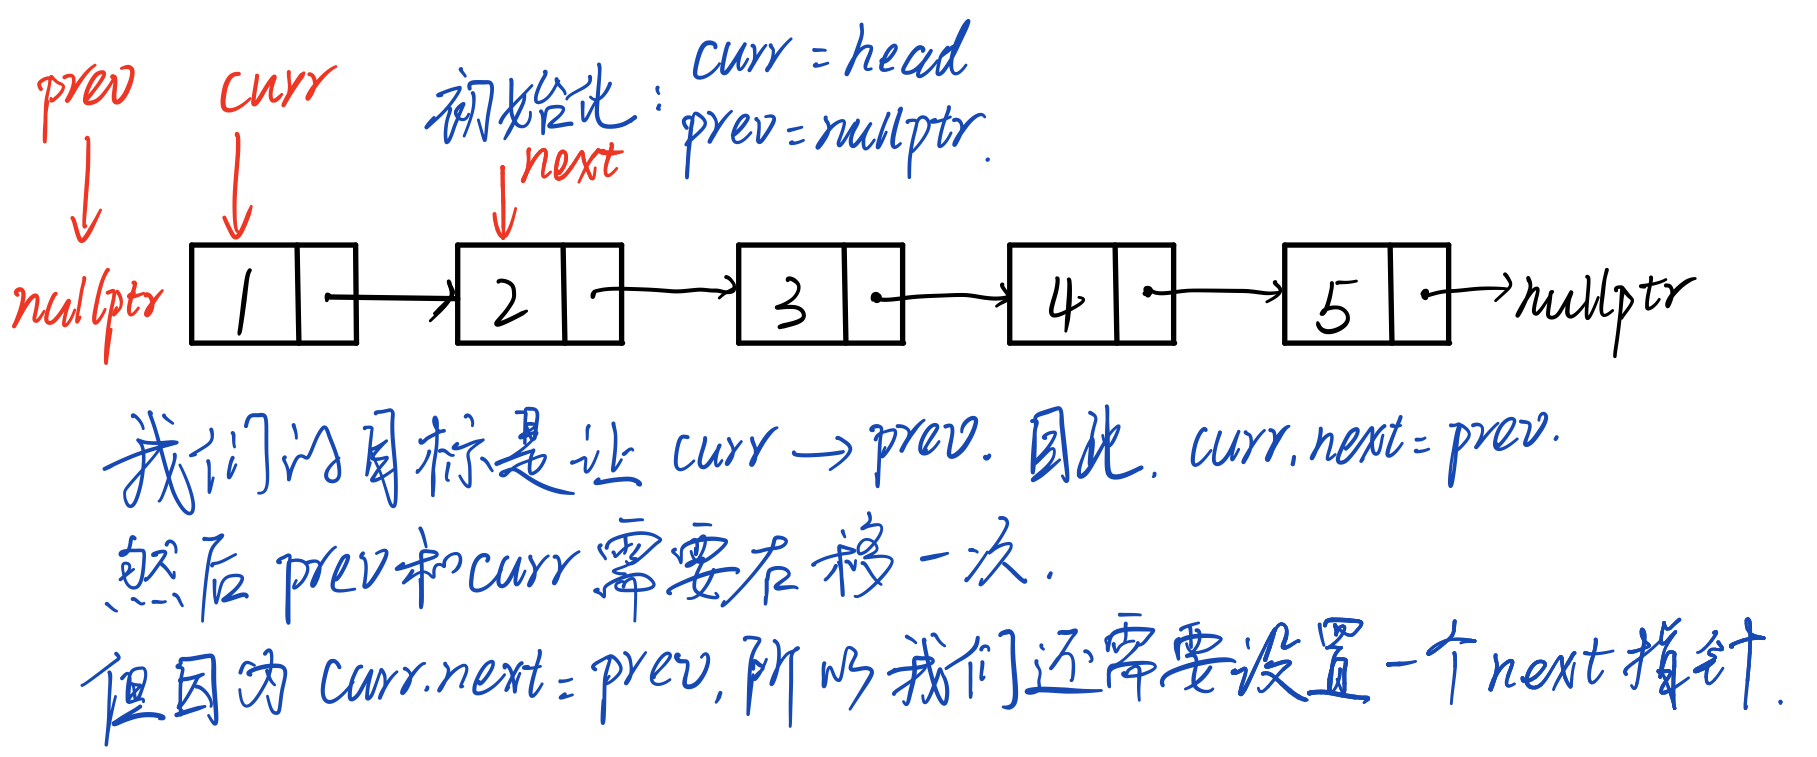 prev
curr
初始化：curr = head
prev = nullptr.
next
nullptr
1 2 3 4 5 nullptr
我们的目标是让 curr → prev. 因此. curr.next = prev.
然后 prev和curr 需要右移一次.
但因为 curr.next = prev, 所以我们还需要设置一个next指针.